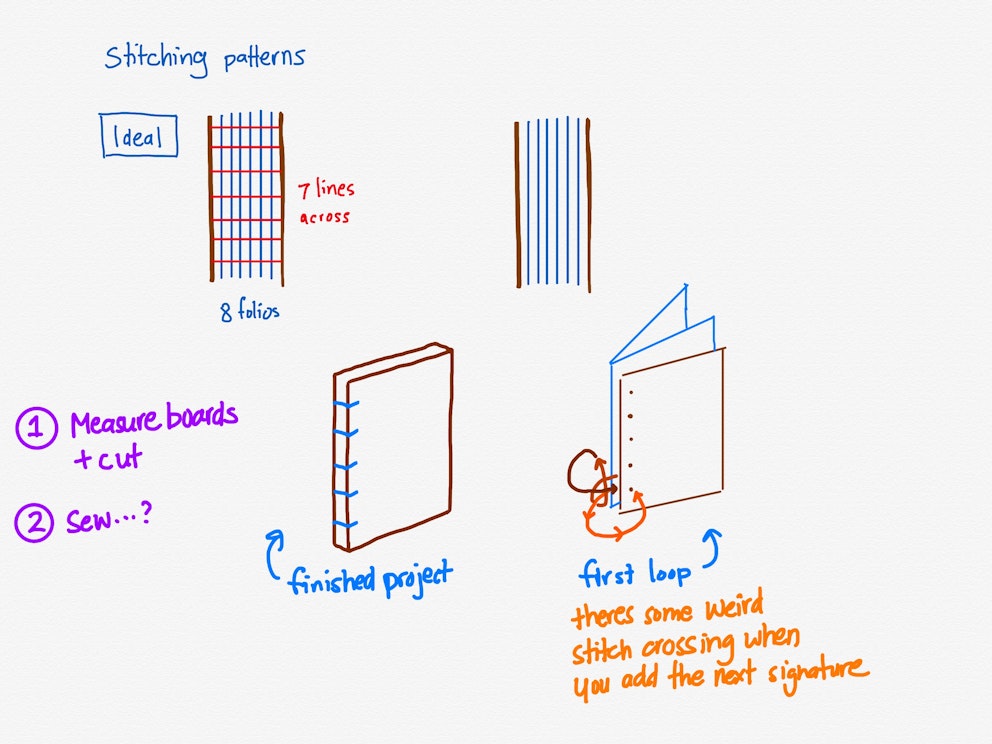 Stitching patterns
Ideal
7 lines
across
8 folios
1 Measure boards
+ cut
2 Sew...?
finished project
first loop
theres some weird
stitch crossing when
you add the next signature